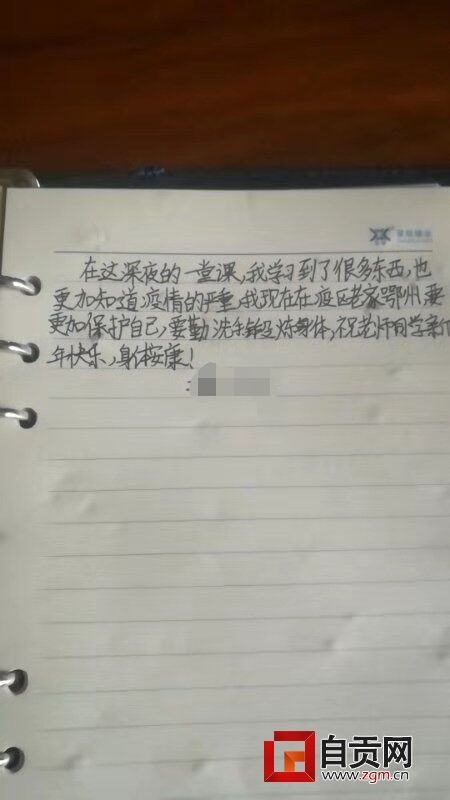 在这深夜的一堂课,我学习到了很多东西,也
更加知道疫情的严重,我现在在疫区老家鄂州,要
更加保护自己,要勤洗手锻炼身体,祝老师同学新
年快乐,身体安康!
自贡网
www.zgm.cn